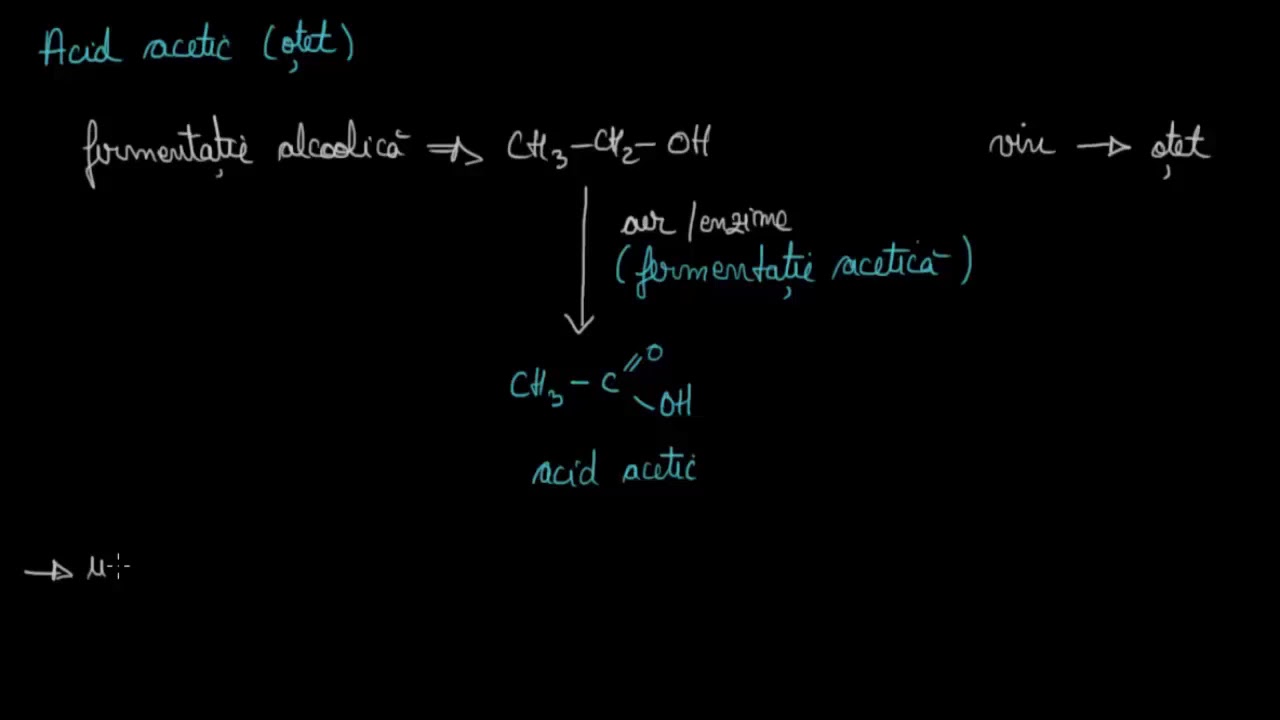 Acid acetic (oțet)
fermentație alcoolică ⇒ CH₃-CH₂-OH vin → oțet
aer/enzime
(fermentație acetică)
O
CH₃-C
OH
acid acetic
→